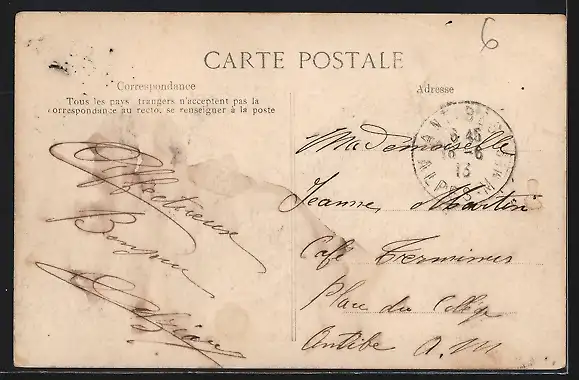 6
CARTE POSTALE
Correspondance
Tous les pays trangers n'acceptent pas la
correspondance au recto. se renseigner à la poste
Affectueux
Bonjour
Adresse
ANTIBES
6 45
16 -6
13
ALPES-MMES
Mademoiselle
Jeanne Martin
Café Terminus
Place du Collège
Antibe A. M